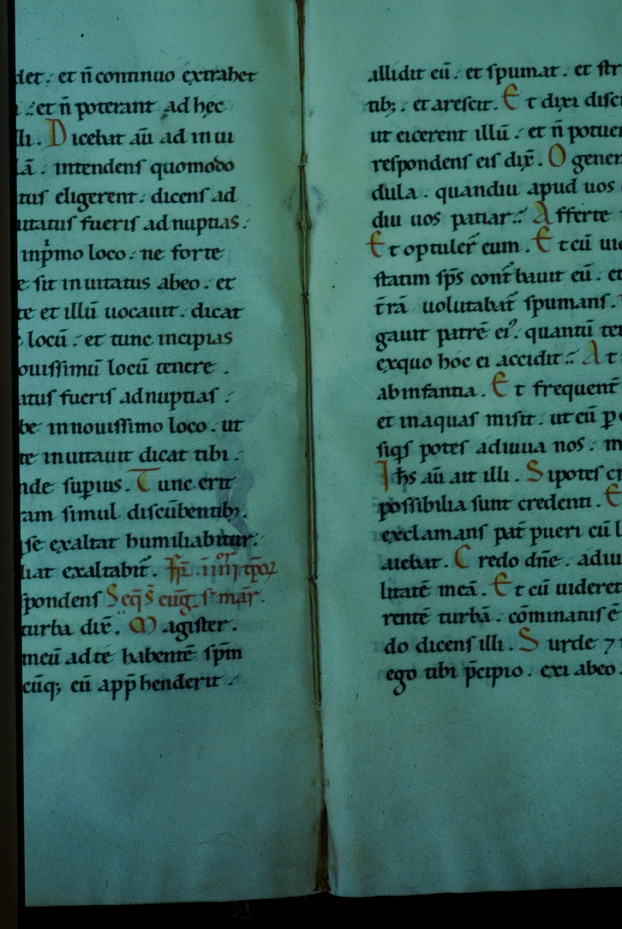 det. et n̄ continuo extrahet
. et n̄ poterant ad hęc
lli. Dicebat aū ad inui
lā. intendens quomodo
tus eligerent. dicens ad
uitatus fueris ad nuptias.
in pͥmo loco. ne forte
e sit inuitatus abeo. et
te et illū uocauit. dicat
locū. et tunc incipias
ouissimū locū tenere.
atus fueris ad nuptias.
be in nouissimo loco. ut
te inuitauit dicat tibi.
nde supius. Tunc erit
am simul discūbentib;.
se exaltat humiliabitur.
liat exaltabit̄. Fr̄. iiiior tp̄oꝝ
spondens Seqs̄ eūg. s. mār.
turba dix̄. Magister.
meū adte habentē sp̄m
cūq; eū app̄henderit.
allidit eū. et spumat. et str
tib;. et arescit. Et dixi disci
ut eicerent illū. et n̄ potuer
respondens eis dix̄. O gener
dula. quandiu apud uos
diu uos patiar. Afferte
Et optuler̄ eum. Et cū uid
statim sp̄s cont̄bauit eū. et
t̄rā uolutabat̄ spumans.
gauit patrē eiꝰ. quantū tem
exquo hoc ei accidit. At
abinfantia. Et frequent̄
et inaquas misit. ut eū ꝑ
siqs potes adiuua nos. m
Ih̄s aū ait illi. Sipotes cr
possibilia sunt credenti. E
exclamans pat̄ pueri cū l
aiebat. Credo dn̄e. adiu
litatē meā. Et cū uideret
rentē turbā. cōminatus ē
do dicens illi. Surde ⁊
ego tibi p̄cipio. exi abeo.